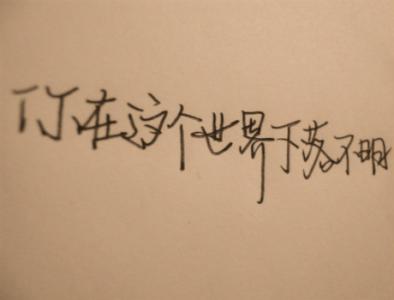 TJ在这个世界下落不明